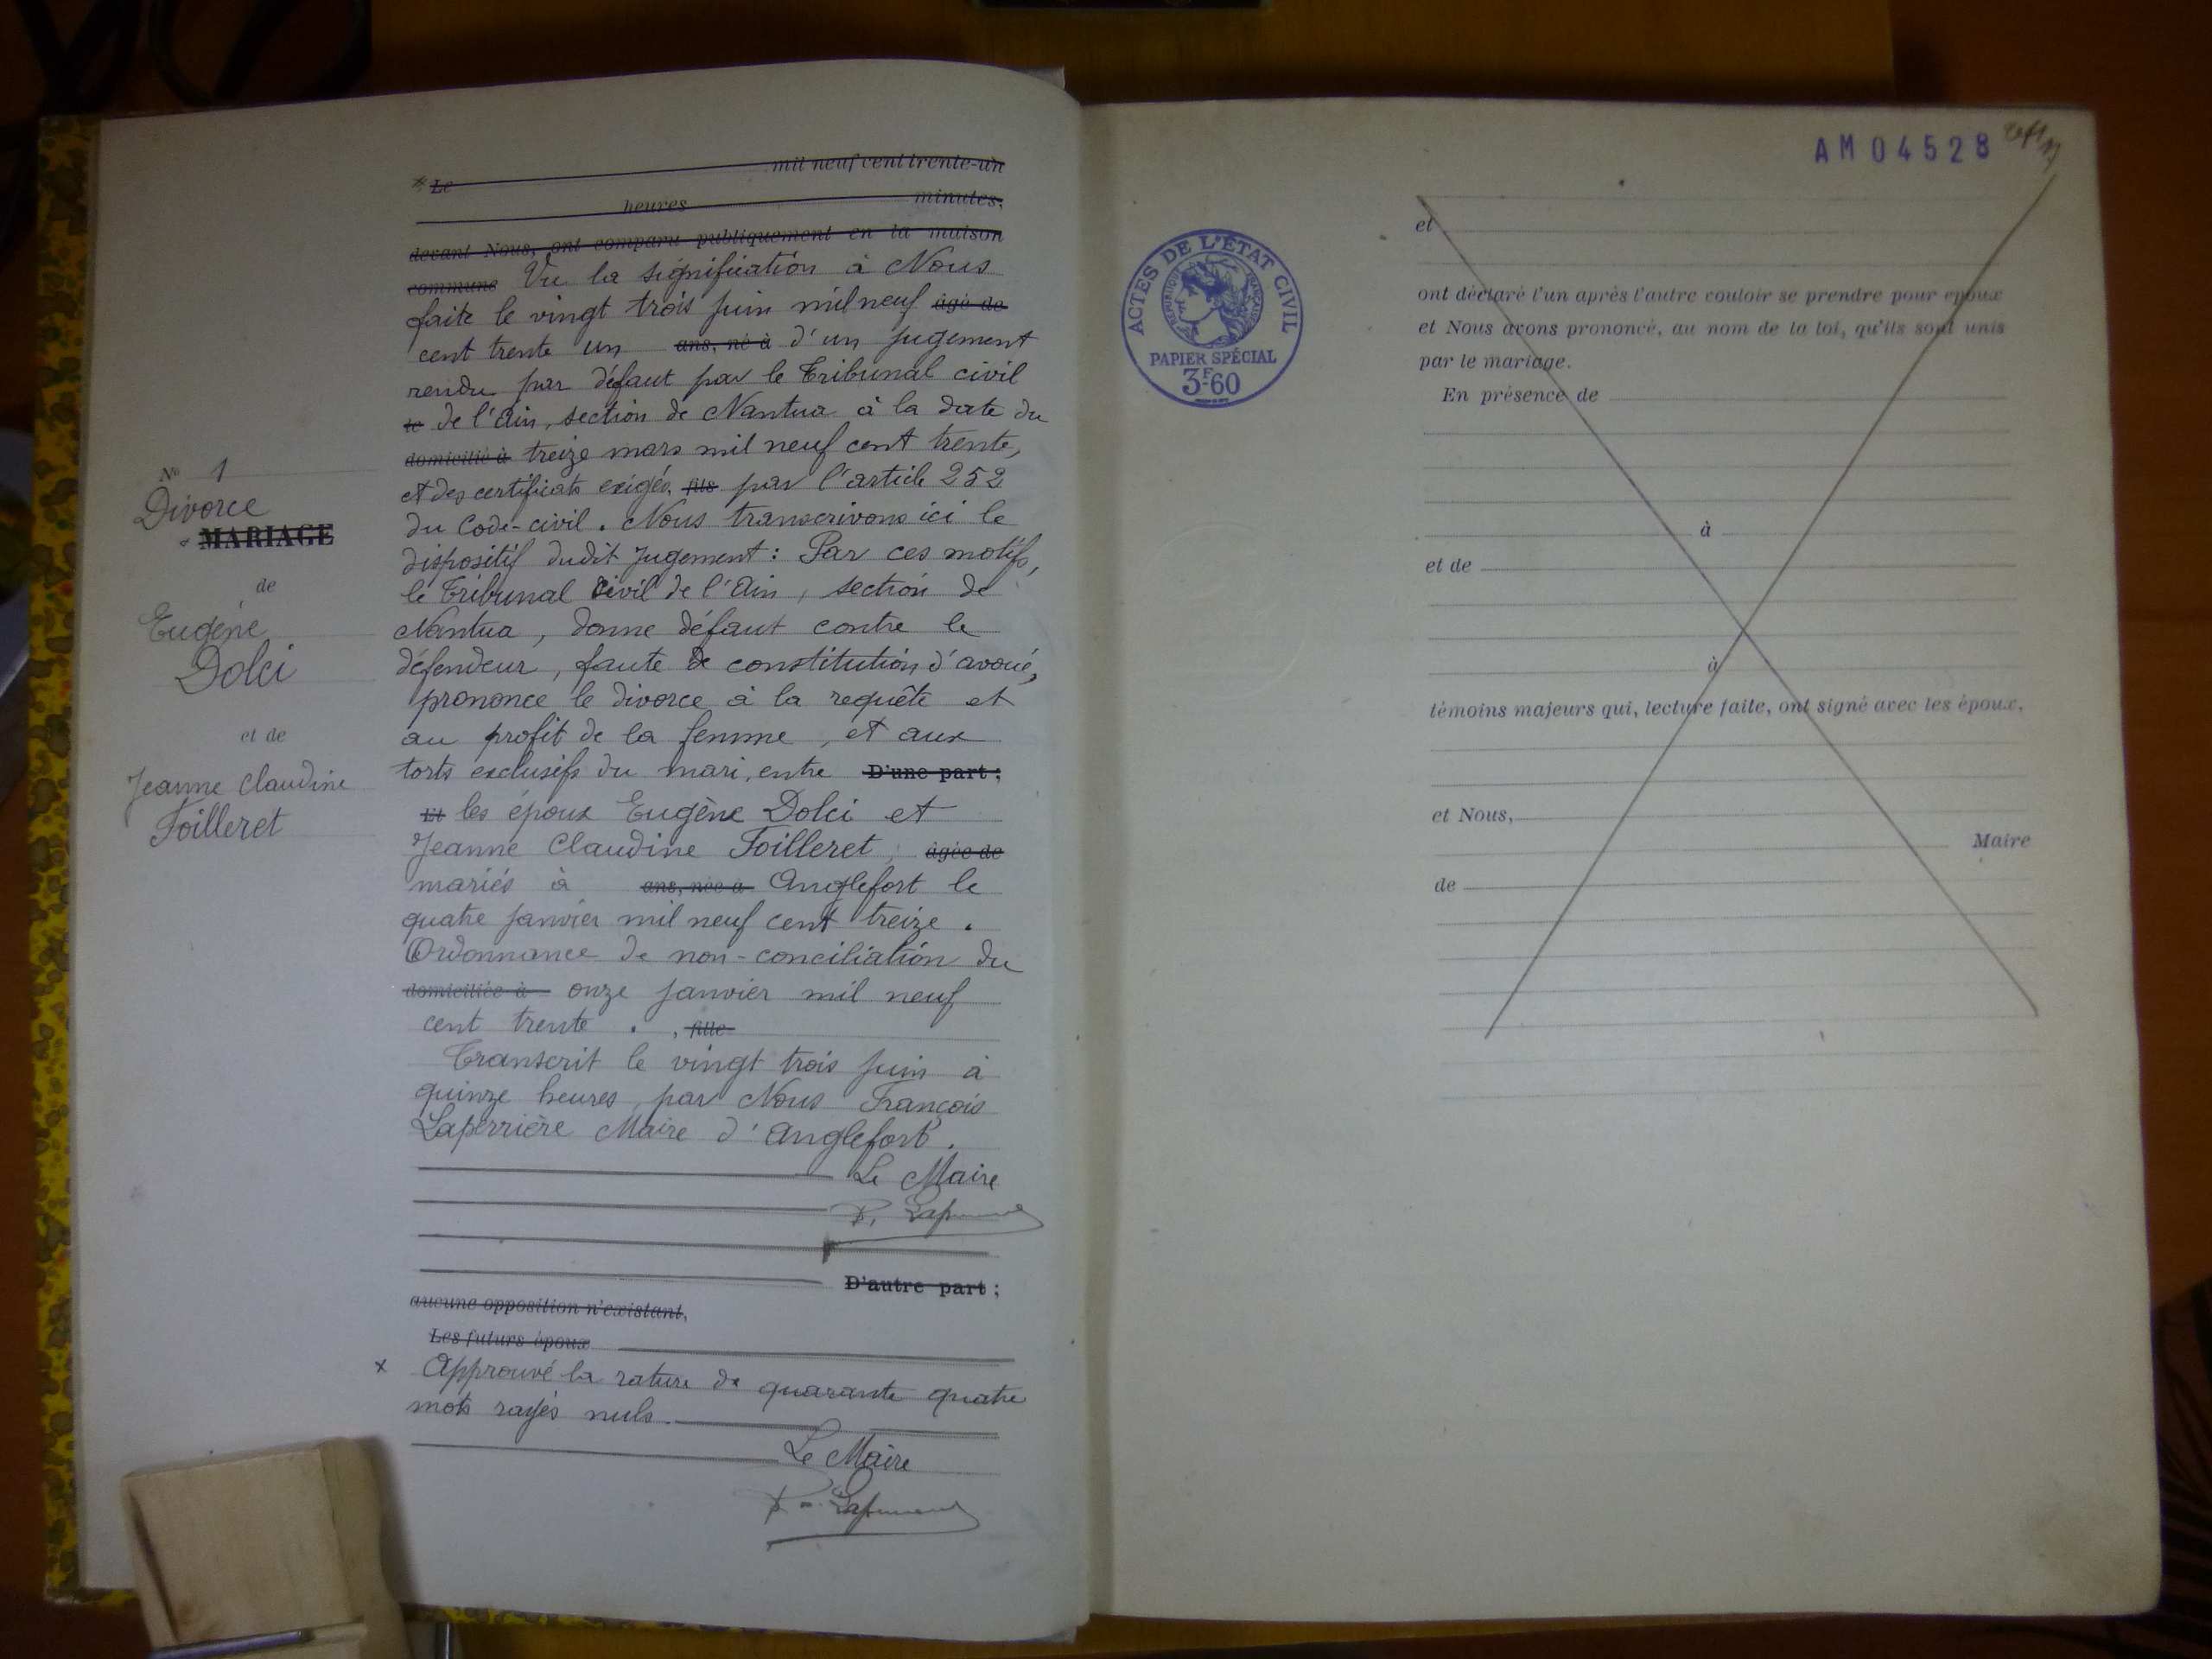 * Le mil neuf cent trente-un
heures minutes,
devant Nous, ont comparu publiquement en la maison
commune Vu la signification à Nous
faite le vingt trois juin mil neuf âgé de
cent trente un ans, né à d'un jugement
rendu par défaut par le Tribunal civil
le de l'Ain, section de Nantua à la date du
domicilié à treize mars mil neuf cent trente,
et des certificats exigés, fils par l'article 252
du Code-civil. Nous transcrivons ici le
dispositif dudit jugement : Par ces motifs,
le Tribunal civil de l'Ain, section de
Nantua, donne défaut contre le
défendeur, faute de constitution d'avoué,
prononce le divorce à la requête et
au profit de la femme, et aux
torts exclusifs du mari, entre D'une part ;
Et les époux Eugène Dolci et
Jeanne Claudine Foilleret, âgée de
mariés à ans, née à Anglefort le
quatre janvier mil neuf cent treize.
Ordonnance de non-conciliation du
domiciliée à onze janvier mil neuf
cent trente. , fille
Transcrit le vingt trois juin à
quinze heures, par Nous François
Laperrière Maire d'Anglefort.
Le Maire
D'autre part ;
aucune opposition n'existant,
Les futurs époux
x Approuvé la rature de quarante quatre
mots rayés nuls.
Le Maire
N° 1
Divorce
MARIAGE
de
Eugène
Dolci
et de
Jeanne Claudine
Foilleret
AM04528
ACTES DE L'ÉTAT CIVIL
RÉPUBLIQUE FRANÇAISE
PAPIER SPÉCIAL
3F.60
et
ont déclaré l'un après l'autre vouloir se prendre pour époux
et Nous avons prononcé, au nom de la loi, qu'ils sont unis
par le mariage.
En présence de
à
et de
à
témoins majeurs qui, lecture faite, ont signé avec les époux,
et Nous,
Maire
de